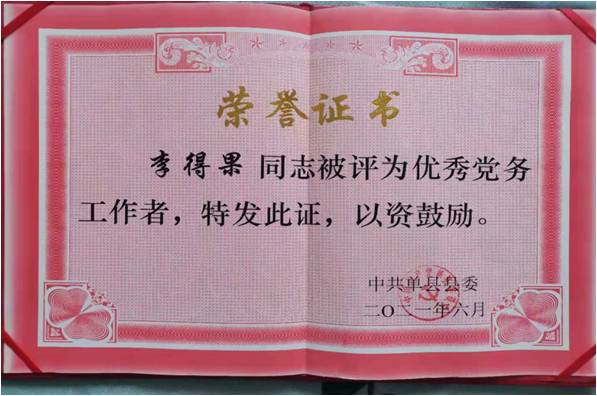 荣誉证书
李得果 同志被评为优秀党务
工作者，特发此证，以资鼓励。
中共单县县委
二〇二一年六月